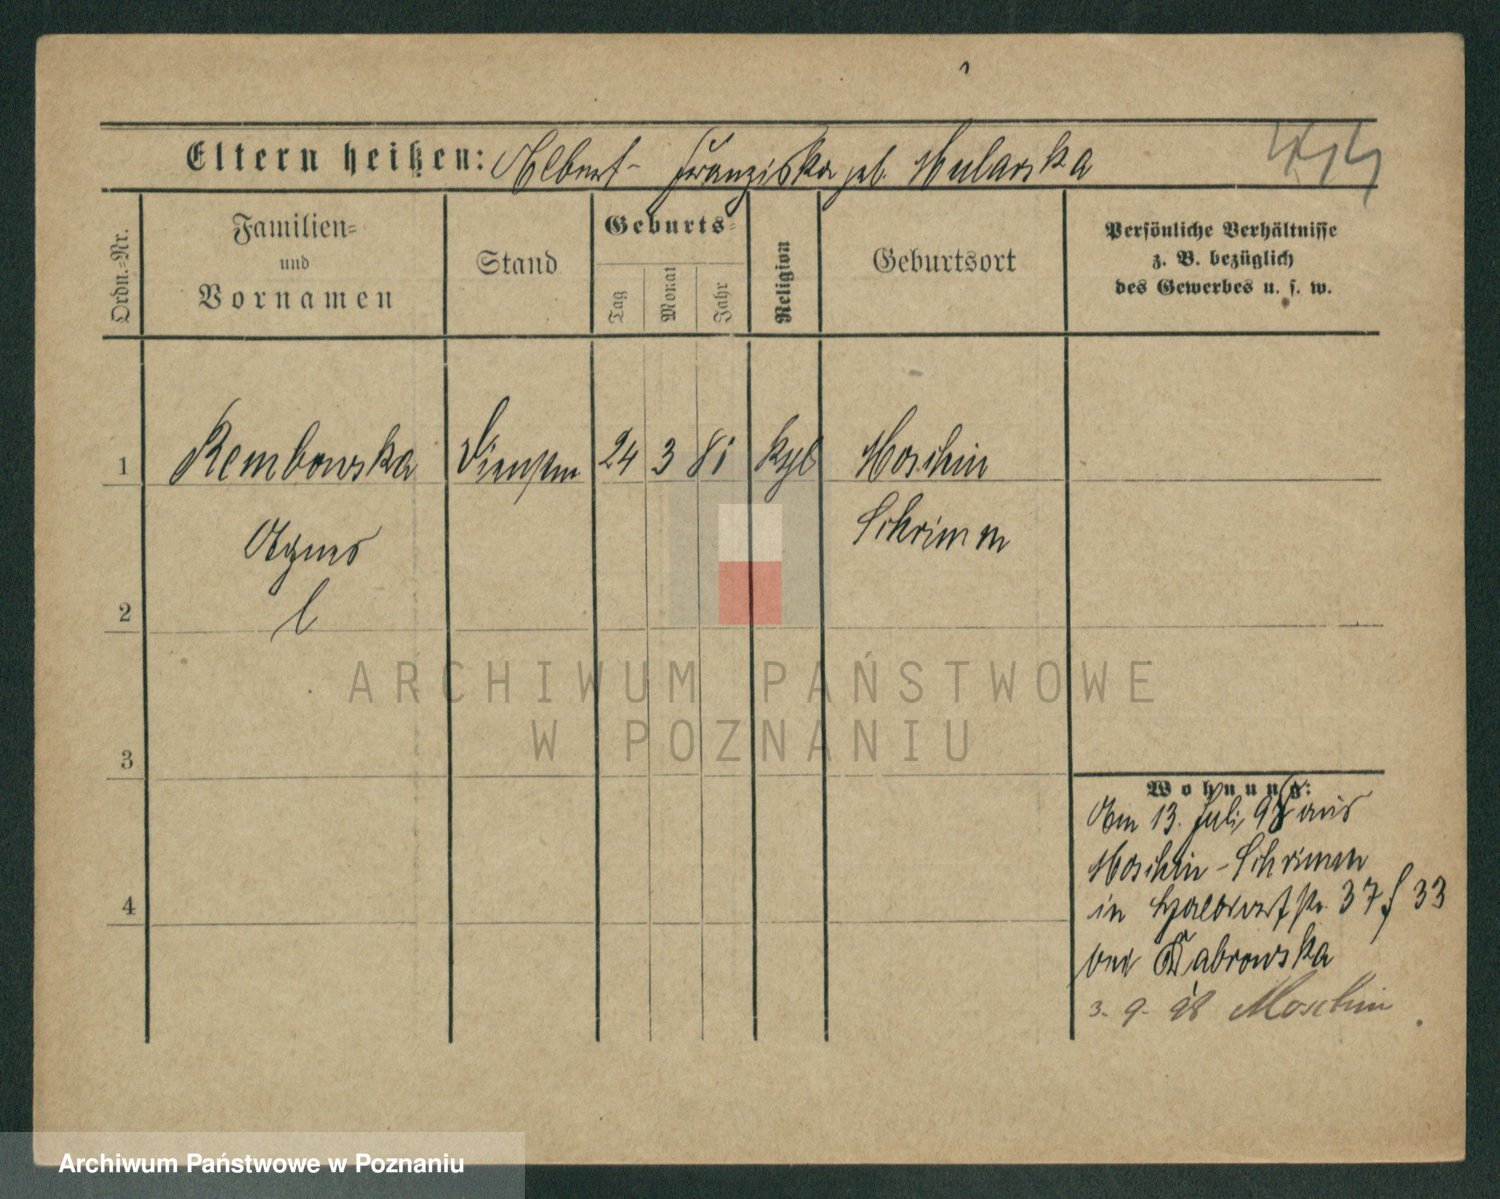 Eltern heißen: Albert - Franziska geb. Mularska
Ordn.-Nr.
Familien-
und
Vornamen
Stand
Geburts-
Tag
Monat
Jahr
Religion
Geburtsort
Persönliche Verhältnisse
z. B. bezüglich
des Gewerbes u. s. w.
1 Rembowska Dienstm 24 3 81 Kath Moschin
Schrimm
Agnes
l
2
3
4
Wohnung:
Am 13. Juli 98 aus
Moschin - Schrimm
in Halbdorfstr. 37 f 33
bei Dabrowska
3. 9. 98 Moschin
ARCHIWUM PAŃSTWOWE
W POZNANIU
Archiwum Państwowe w Poznaniu